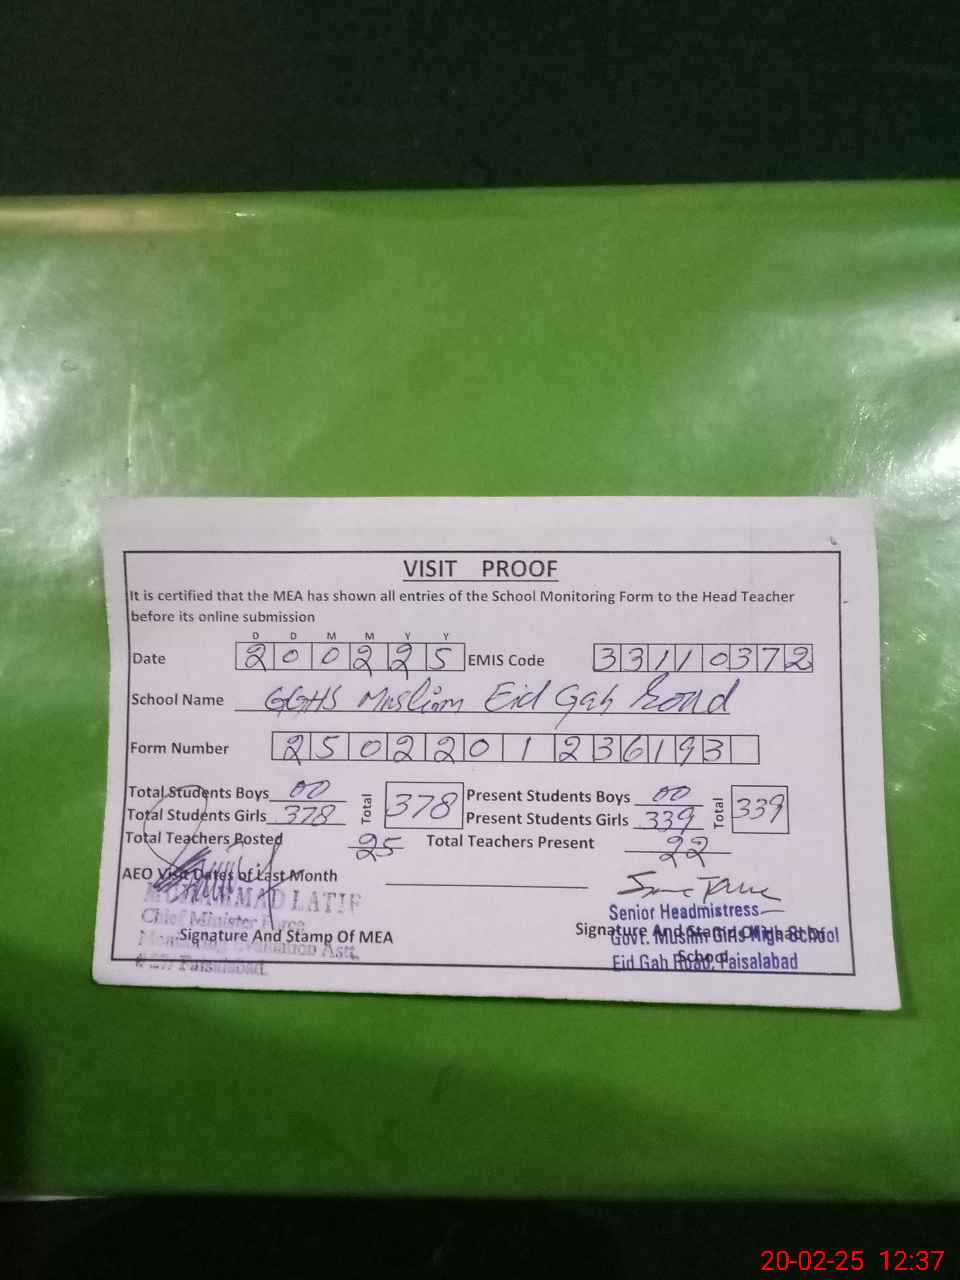 VISIT PROOF
It is certified that the MEA has shown all entries of the School Monitoring Form to the Head Teacher
before its online submission
D D M M Y Y
Date 200225 EMIS Code 33110372
School Name GGHS Muslim Eid Gah Road
Form Number 2502201236193
Total Students Boys 00 Total 378 Present Students Boys 00 Total 339
Total Students Girls 378 Present Students Girls 339
Total Teachers Posted 25 Total Teachers Present 22
AEO Visit Dates of Last Month
MUHAMMAD LATIF
Chief Minister Force
Signature And Stamp Of MEA
Faisalabad
Senior Headmistress
Signature And Stamp Of
School
Govt. Muslim Girls High School
Eid Gah Road, Faisalabad
20-02-25 12:37